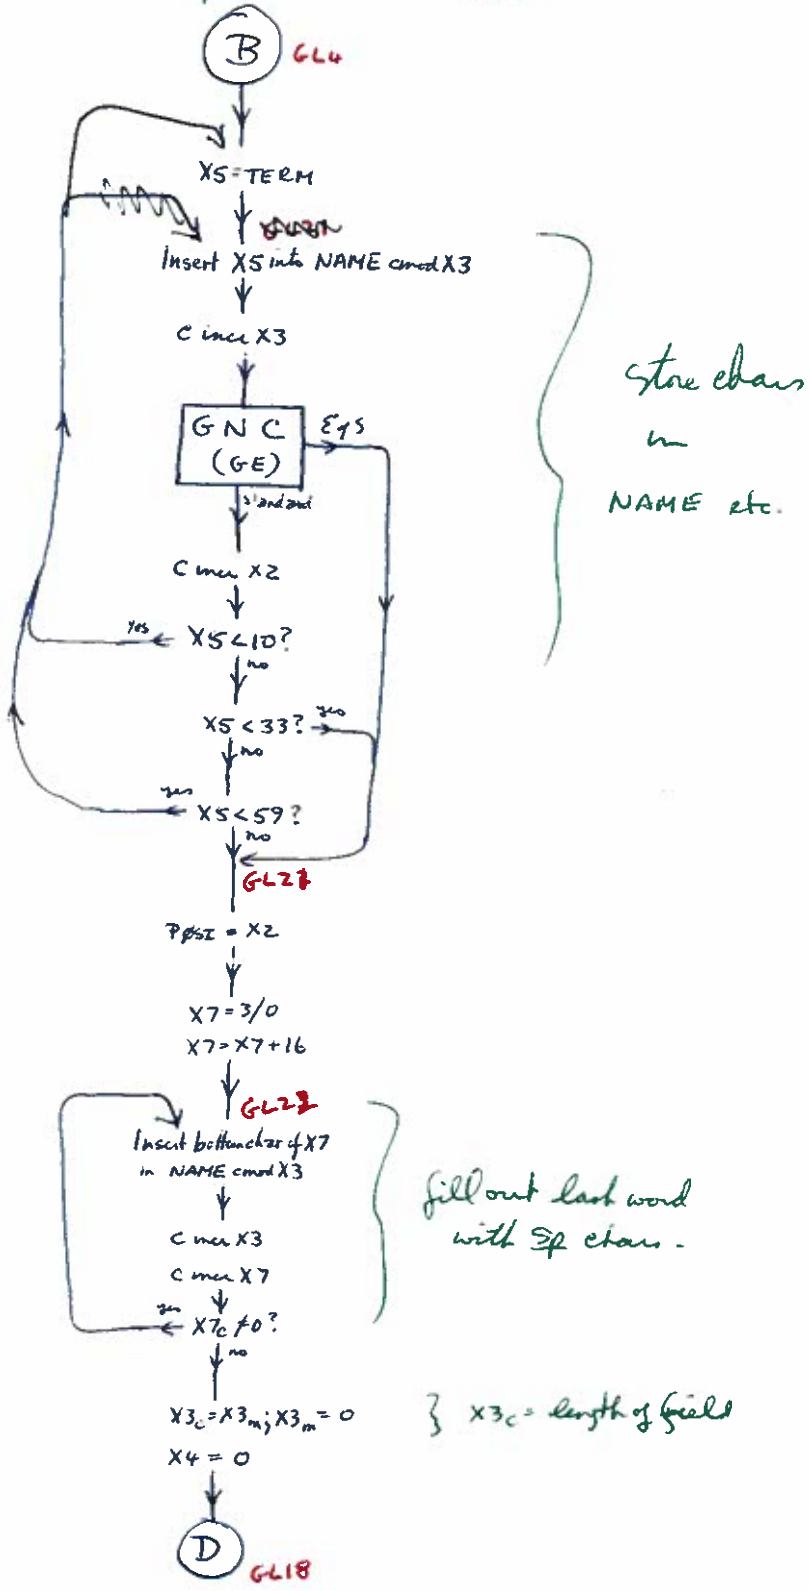 B GL4
X5=TERM
Insert X5 into NAME cmod X3
C incr X3
GNC Eqs
(GE)
standard
C incr X2
Yes X5<10?
no
X5<33? yes
no
yes X5<59?
no
GL21
PØSI = X2
X7=3/0
X7=X7+16
Insert bottom char of X7
in NAME cmod X3
C incr X3
C incr X7
yes X7c≠0?
no
X3c=X3m; X3m=0
X4=0
D
GL18
Store chars
in
NAME etc.
fill out last word
with Sp chars.
} X3c = length of field